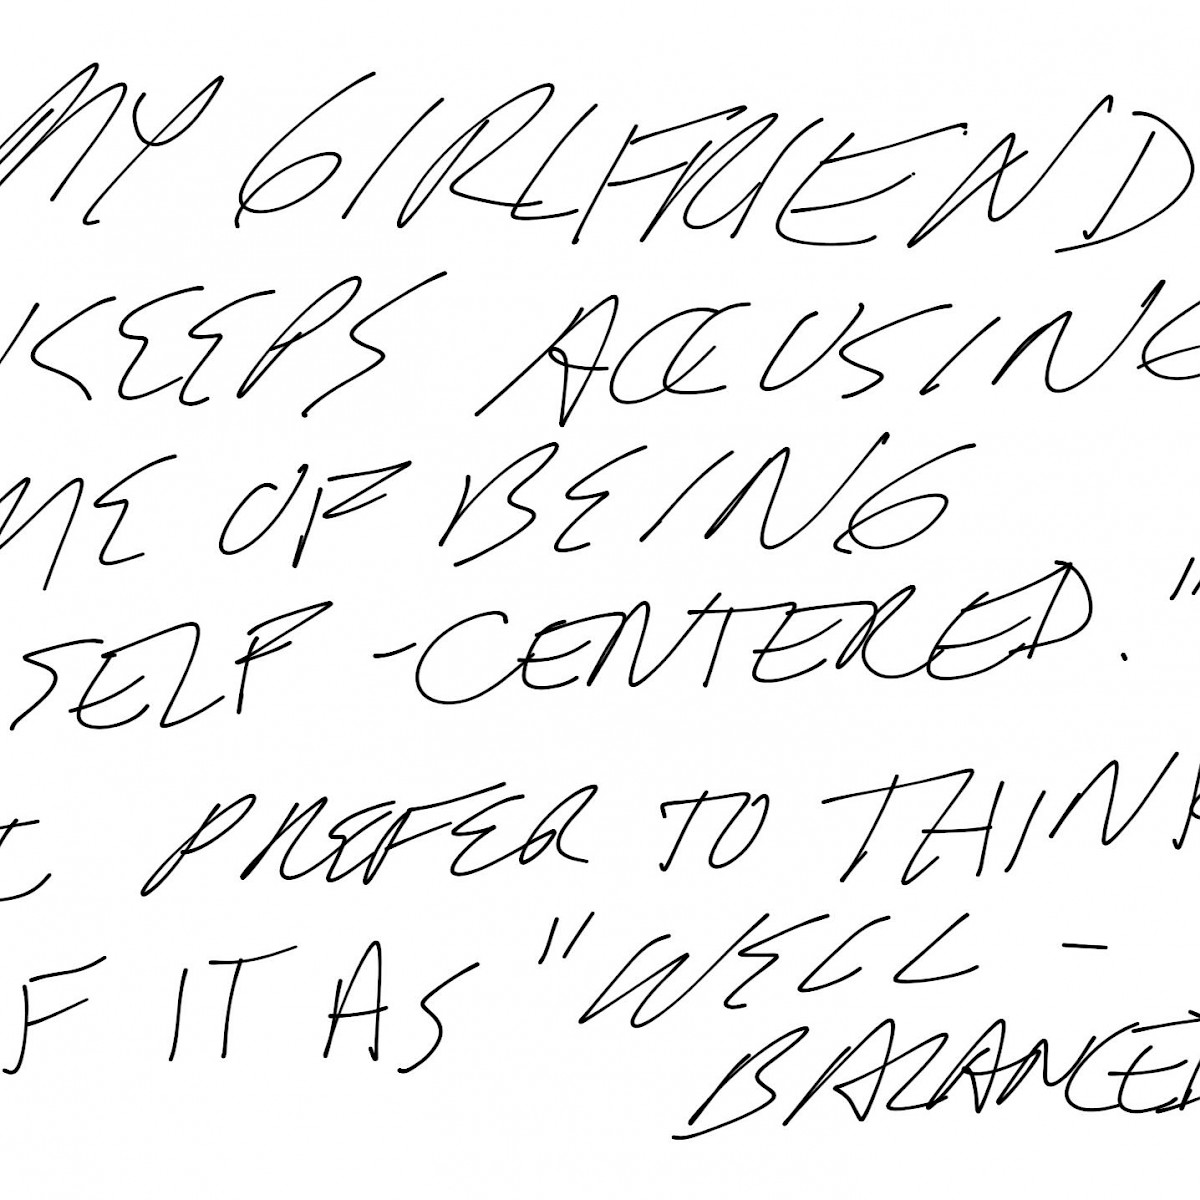 MY GIRLFRIEND
KEEPS ACCUSING
ME OF BEING
SELF-CENTERED."
I PREFER TO THINK
OF IT AS "WELL-
BALANCED